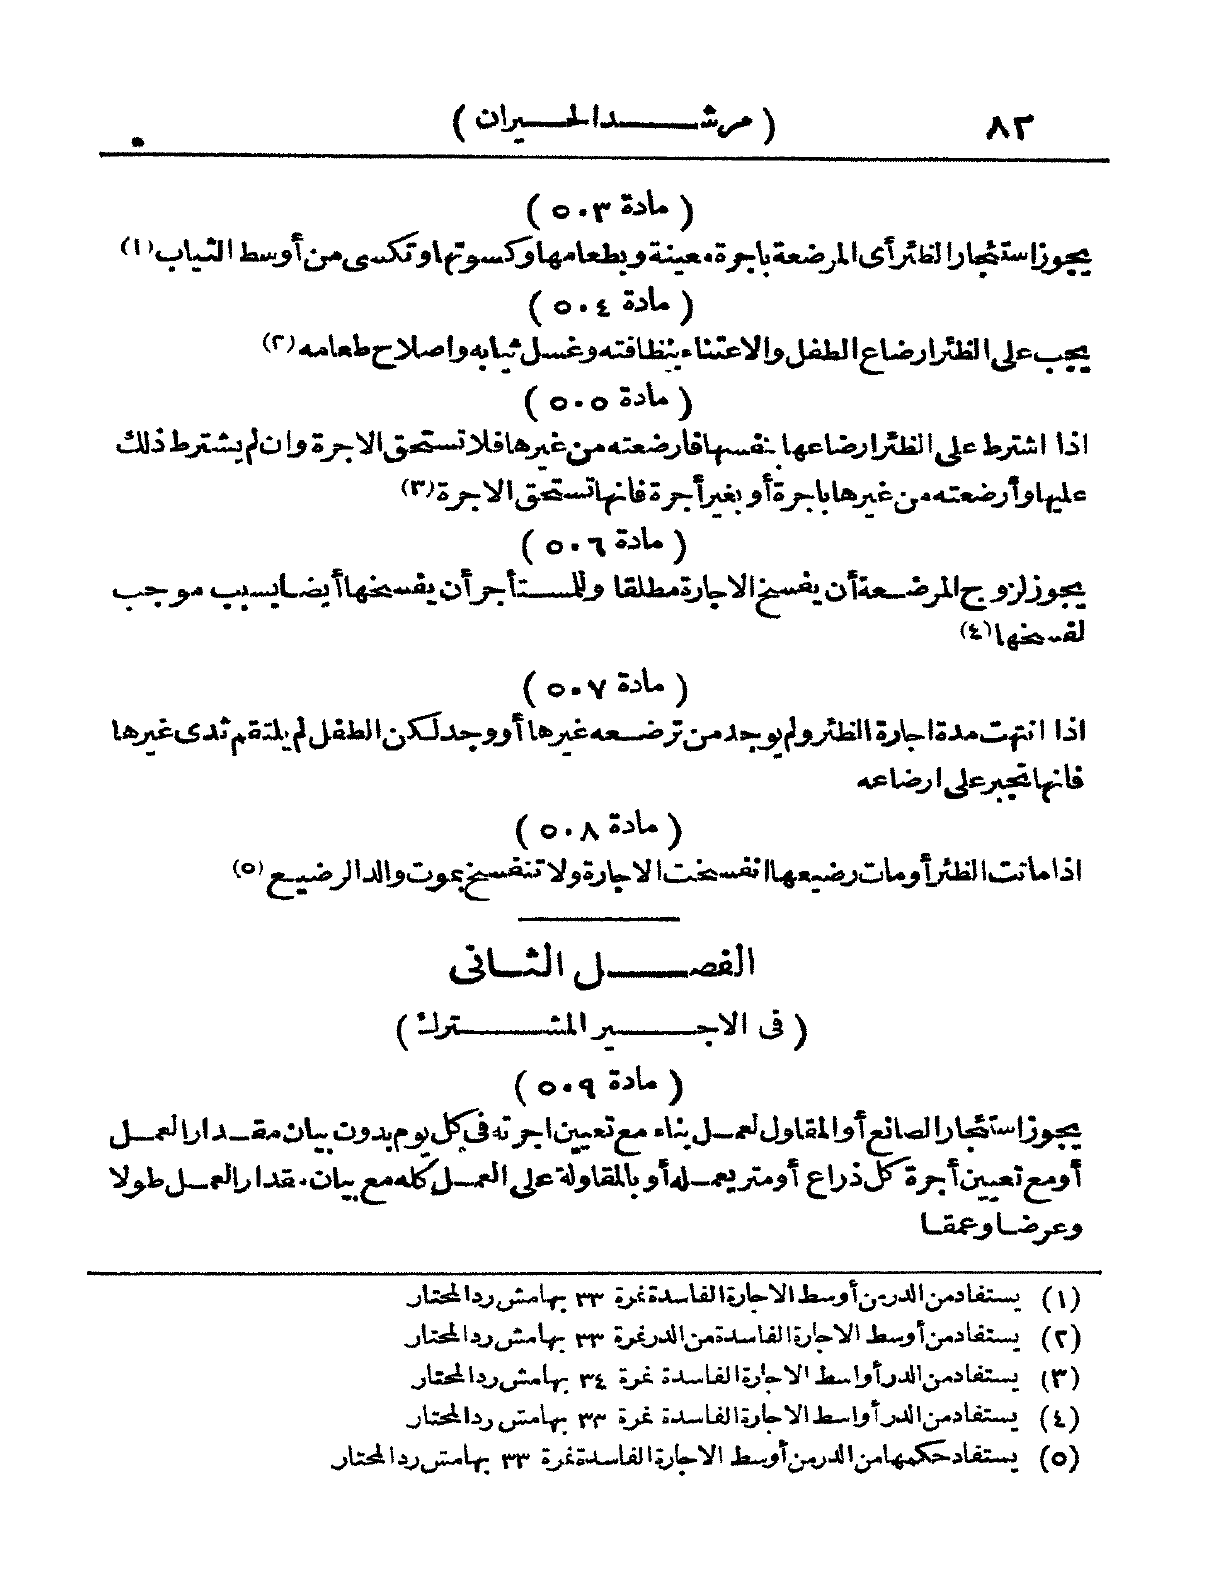 ٨٢
( مرشد الحيران )
( مادة ٥٠٣ )
يجوز استئجار الظئر أى المرضعة باجرة معينة وبطعامها وكسوتها وتكسى من أوسط الثياب (١)
( مادة ٥٠٤ )
يجب على الظئر ارضاع الطفل والاعتناء بنظافته وغسل ثيابه واصلاح طعامه (٢)
( مادة ٥٠٥ )
اذا اشترط على الظئر ارضاعها بنفسها فارضعته من غيرها فلا تستحق الاجرة وان لم يشترط ذلك
عليها وأرضعته من غيرها باجرة أو بغير أجرة فانها تستحق الاجرة (٣)
( مادة ٥٠٦ )
يجوز لزوج المرضعة أن يفسخ الاجارة مطلقا وللمستأجر أن يفسخها أيضا بسبب موجب
لفسخها (٤)
( مادة ٥٠٧ )
اذا انتهت مدة اجارة الظئر ولم يوجد من ترضعه غيرها أو وجد لكن الطفل لم يلتقم ثدى غيرها
فانها تجبر على ارضاعه
( مادة ٥٠٨ )
اذا ماتت الظئر أو مات رضيعها انفسخت الاجارة ولا تنفسخ بموت والد الرضيع (٥)
الفصل الثانى
( فى الاجير المشترك )
( مادة ٥٠٩ )
يجوز استئجار الصانع أو المقاول لعمل بناء مع تعيين اجرته فى كل يوم بدون بيان مقدار العمل
أو مع تعيين أجرة كل ذراع أو متر يعمله أو بالمقاولة على العمل كله مع بيان مقدار العمل طولا
وعرضا وعمقا
(١) يستفاد من الدر من أوسط الاجارة الفاسدة نمرة ٣٣ بهامش رد المحتار
(٢) يستفاد من أوسط الاجارة الفاسدة من الدر نمرة ٣٣ بهامش رد المحتار
(٣) يستفاد من الدر أواسط الاجارة الفاسدة نمرة ٣٤ بهامش رد المحتار
(٤) يستفاد من الدر أواسط الاجارة الفاسدة نمرة ٣٣ بهامش رد المحتار
(٥) يستفاد حكمها من الدر من أوسط الاجارة الفاسدة نمرة ٣٣ بهامش رد المحتار